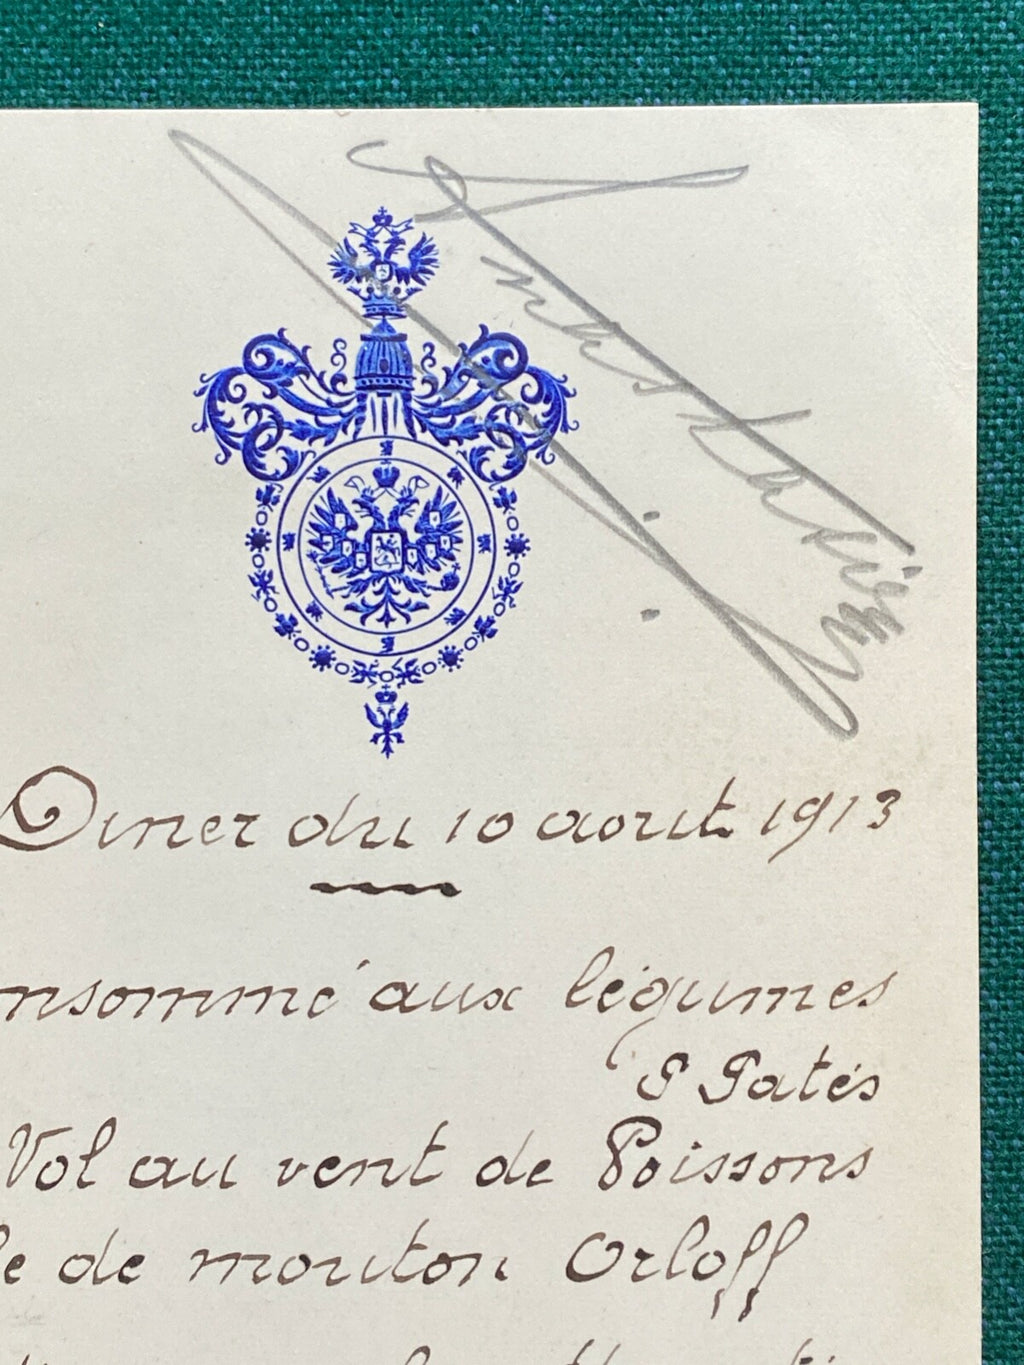 Diner du 10 aout 1913
nsommé aux légumes
P Patés
Vol au vent de Poissons
le de mouton Orloff